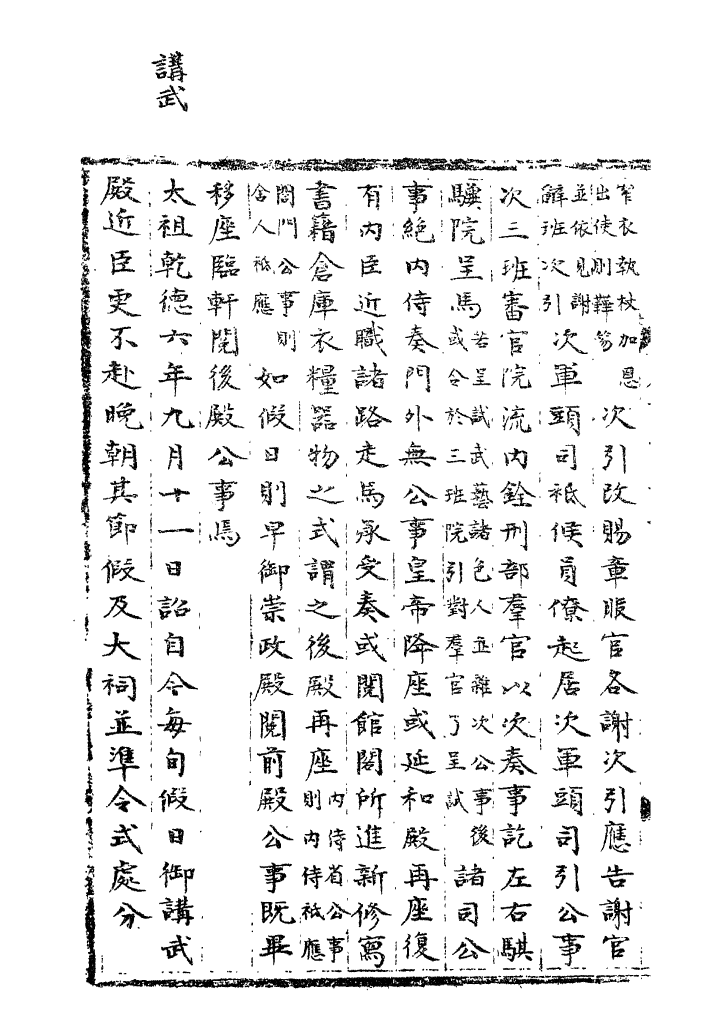 講武
窄衣執杖加恩
出使則鞾笏
次引改賜章服官各謝次引應告謝官
並依見謝
辭班次引
次軍頭司祗候員僚起居次軍頭司引公事
次三班審官院流內銓刑部羣官以次奏事訖左右騏
驥院呈馬
若呈試武藝諸色人並雜次公事後
或令於三班院引對羣官了呈試
諸司公
事絕內侍奏門外無公事皇帝降座或延和殿再座復
有內臣近職諸路走馬承受奏或閱館閣所進新修寫
書籍倉庫衣糧器物之式謂之後殿再座
內侍省公事
則內侍祗應
閤門公事則
舍人祗應
如假日則早御崇政殿閱前殿公事既畢
移座臨軒閱後殿公事焉
太祖乾德六年九月十一日詔自今每旬假日御講武
殿近臣更不赴晚朝其節假及大祠並準令式處分